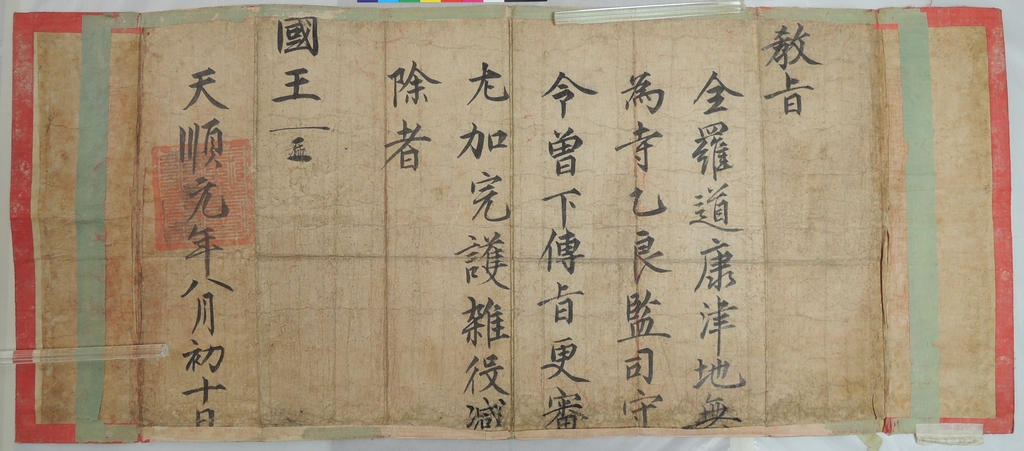 教旨
全羅道康津地無
為寺乙良監司守
令曾下傳旨更審
尤加完護雜役减
除者
國王
天順元年八月初十日